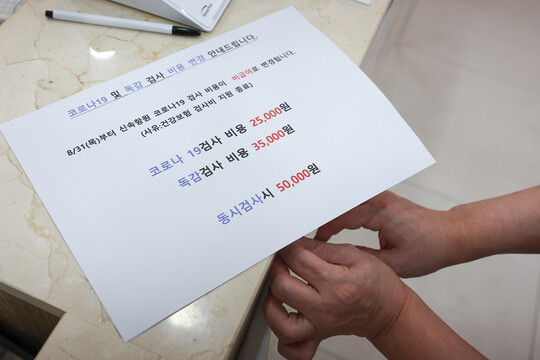 코로나19 및 독감 검사 비용 변경 안내드립니다.
8/31(목)부터 신속항원 코로나19 검사 비용이 비급여로 변경됩니다.
(사유:건강보험 검사비 지원 종료)
코로나 19검사 비용 25,000원
독감검사 비용 35,000원
동시검사시 50,000원